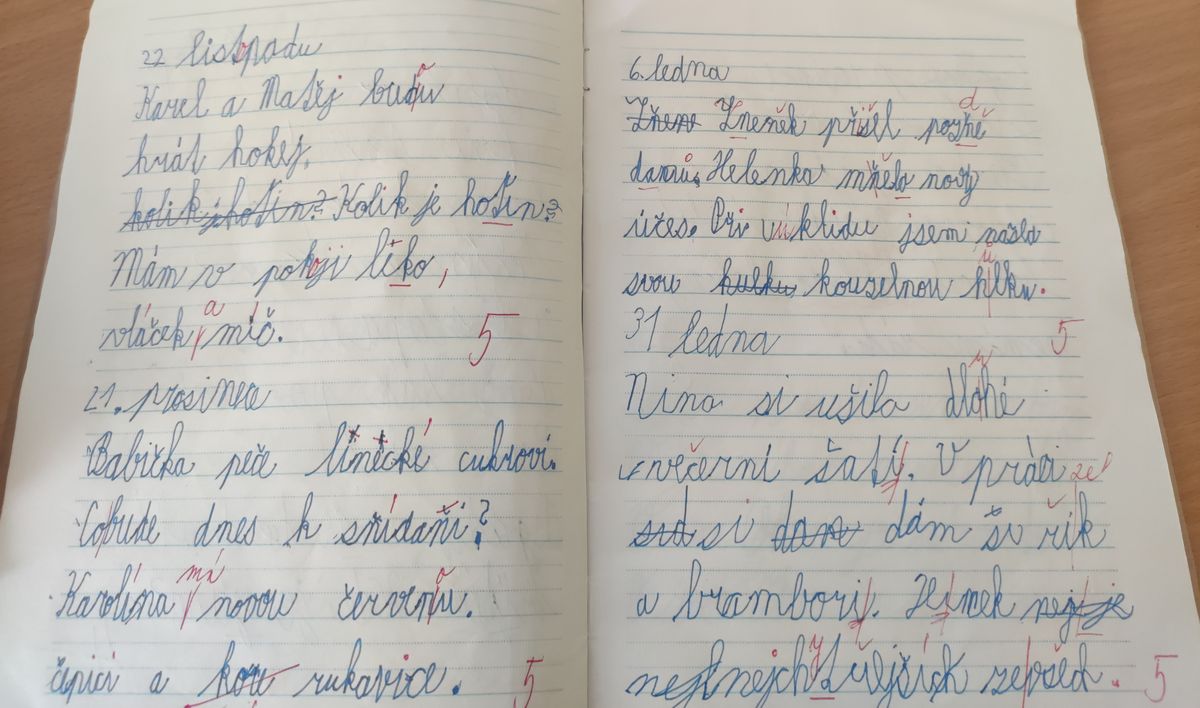 22 listopadu
Karel a Matěj budu
hrát hokej.
kolik je hotin? Kolik je hotin?
Mám v pokji léko,
vláček míč.
5
21. prosince
Babička peče linecké cukrovi.
Co bude dnes k snídani?
Karolína má novou červenu.
čepici a rukavice.
5
6. ledna
Zneněk přišel pozně
damů. Helenka měla nový
účes. Při úklidu jsem nazla
svou kouzelnou hlku.
5
31 ledna
Nina si ušila dlohé
večerní šatj. V práci
si dám ši řík
a bramborij. Hejmek nej je
ze všech.
5